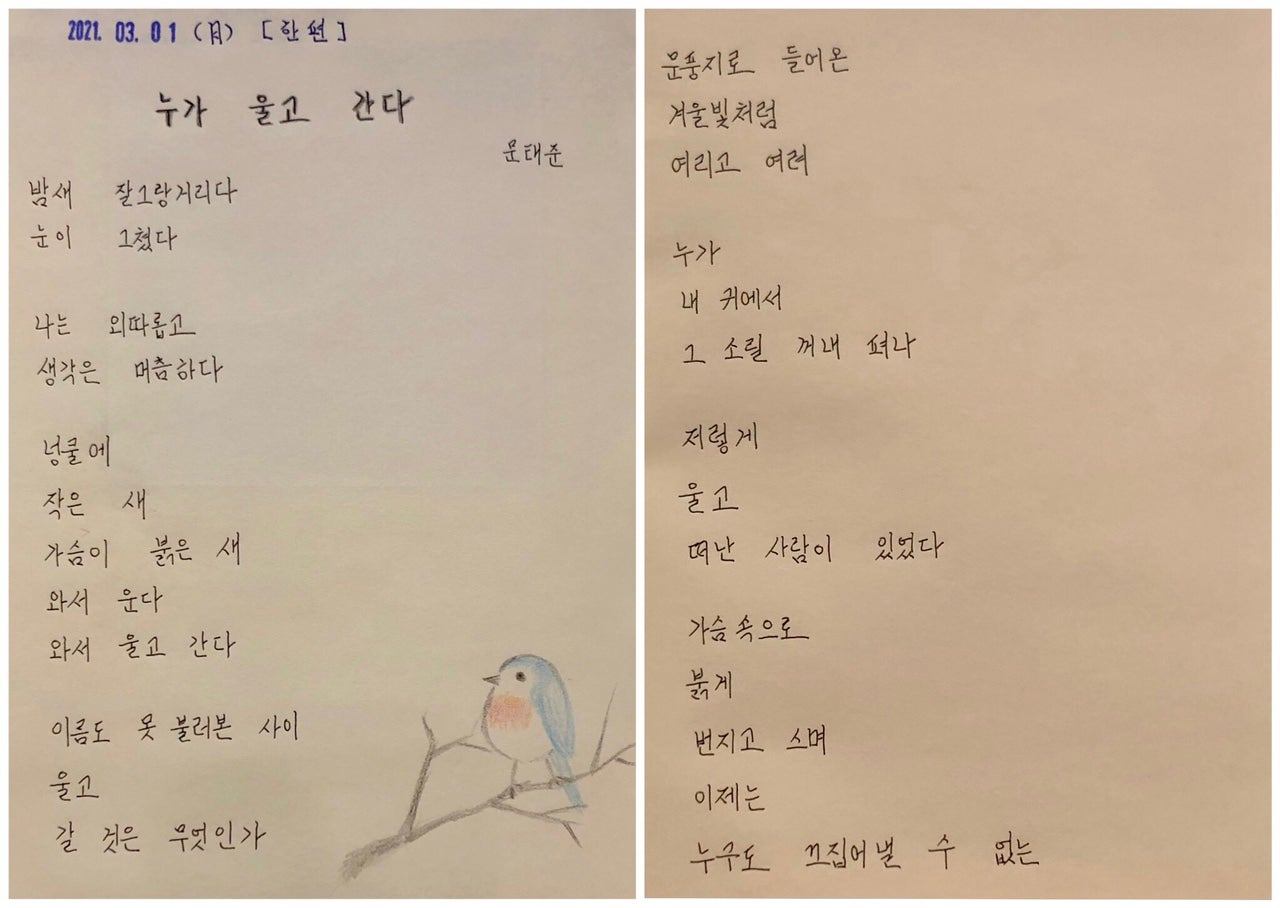 2021. 03. 01 (月) [한편]
누가 울고 간다
문태준
밤새 잘그랑거리다
눈이 그쳤다
나는 외따롭고
생각은 머츰하다
넝쿨에
작은 새
가슴이 붉은 새
와서 운다
와서 울고 간다
이름도 못 불러본 사이
울고
갈 것은 무엇인가
문풍지로 들어온
겨울빛처럼
여리고 여려
누가
내 귀에서
그 소릴 꺼내 펴나
저렇게
울고
떠난 사람이 있었다
가슴속으로
붉게
번지고 스며
이제는
누구도 끄집어낼 수 없는